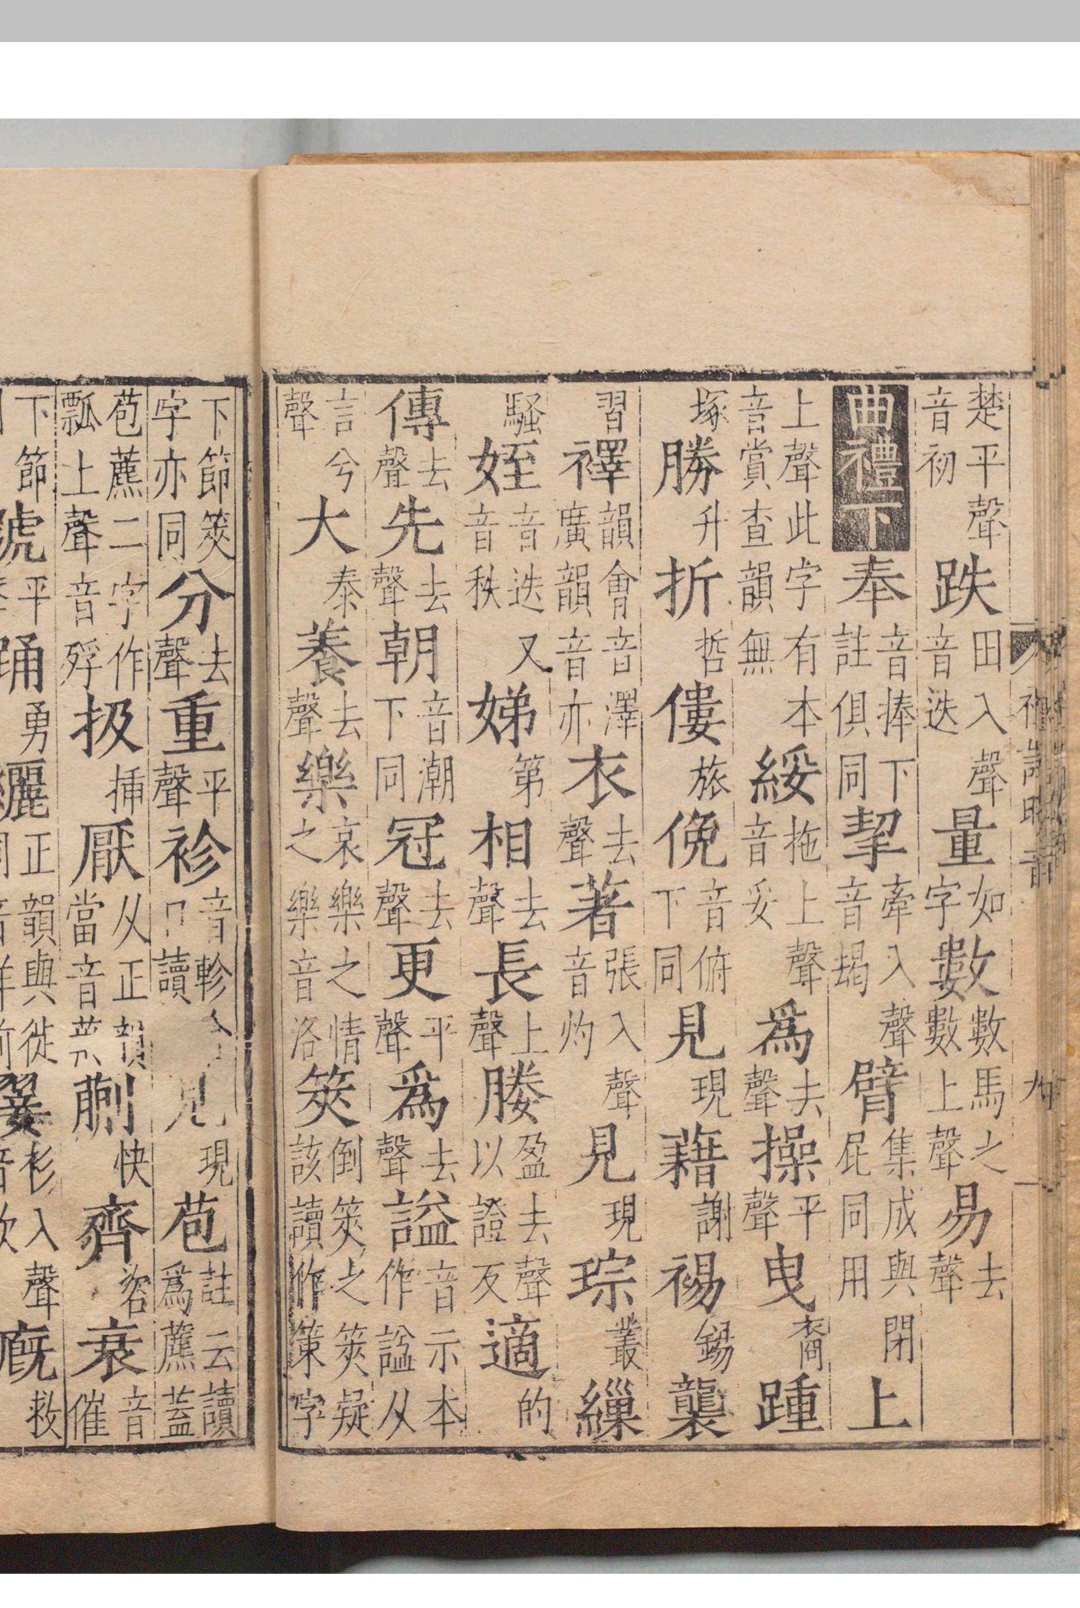 楚平聲音初跌田入聲音迭量如字數數馬之數上聲易去聲
曲禮下奉音捧下註俱同挈牽入聲音朅臂集成與閉屁同用上
上聲此字有本音賞查韻無綏拖上聲音妥爲去聲操平聲曳裔踵
塚勝升折哲僂旅俛音俯下同見現藉謝裼錫襲
習襗韻會音澤廣韻音亦衣去聲著張入聲音灼見現琮叢繅
騷姪音迭又音秩娣第相去聲長上聲媵盈去聲以證反適的
傳去聲先去聲朝音潮下同冠去聲更平聲爲去聲謚音示本作諡从
言兮聲大泰養去聲樂哀樂之情之樂音洛筴倒筴之筴疑該讀作策字
下節筴字亦同分去聲重平聲袗音軫讀見現苞註云讀爲藨蓋
苞藨二字作瓢上聲音殍扱插厭从正韻當音蒯快齊咨衰音催
下節號平踊勇纚正韻與徙翣衫入聲廐救